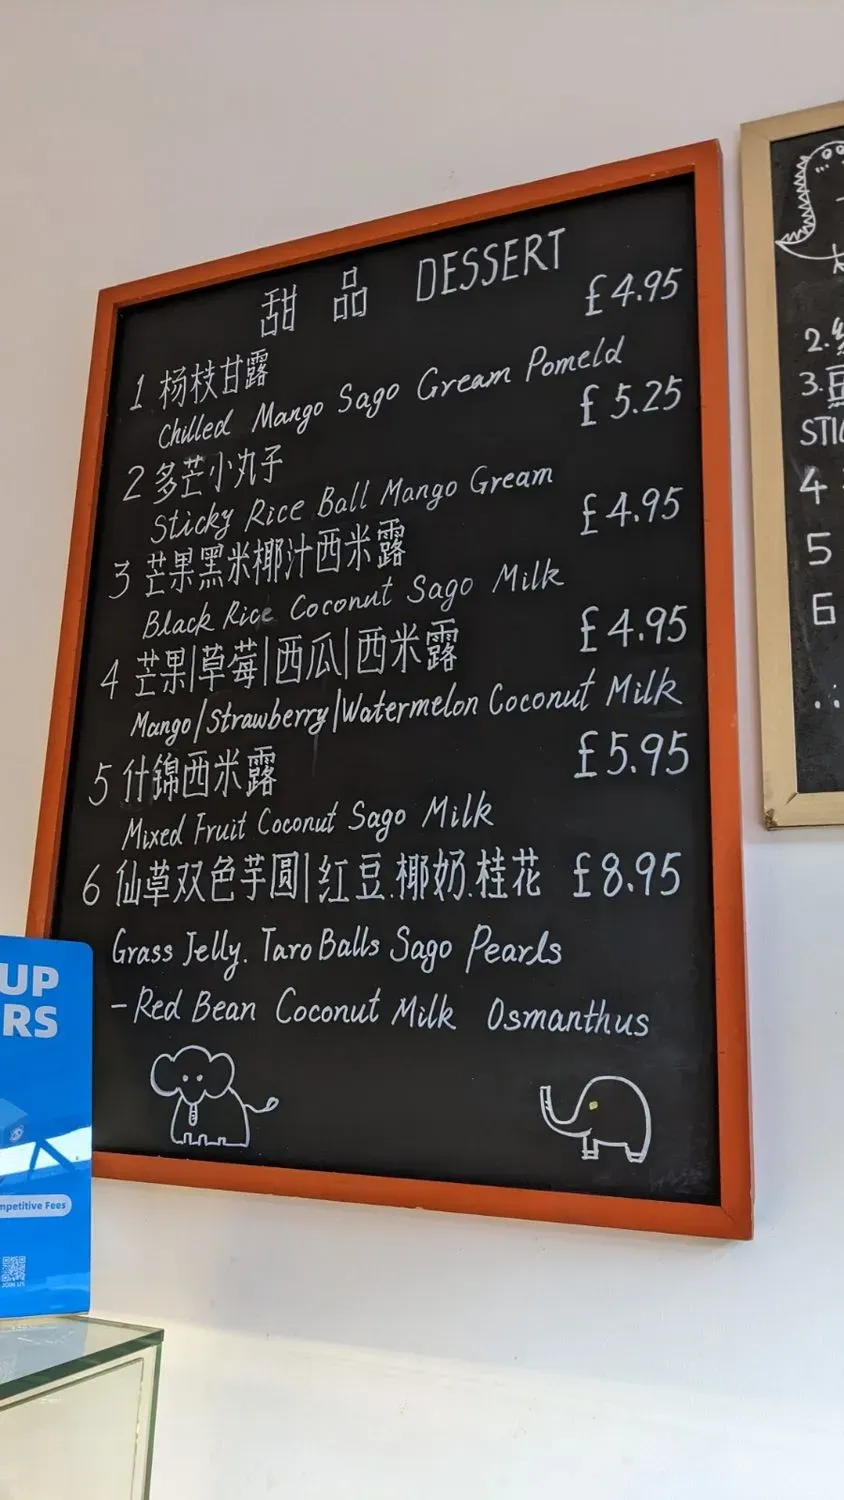 甜品 DESSERT
1 杨枝甘露 £4.95
Chilled Mango Sago Gream Pomeld
2 多芒小丸子 £5.25
Sticky Rice Ball Mango Gream
3 芒果黑米椰汁西米露 £4.95
Black Rice Coconut Sago Milk
4 芒果|草莓|西瓜|西米露 £4.95
Mango/Strawberry/Watermelon Coconut Milk
5 什錦西米露 £5.95
Mixed Fruit Coconut Sago Milk
6 仙草双色芋圆|红豆.椰奶.桂花 £8.95
Grass Jelly. Taro Balls Sago Pearls
-Red Bean Coconut Milk Osmanthus
UP
RS
mpetitive Fees
JOIN US
2.
3.
STI
4
5
6